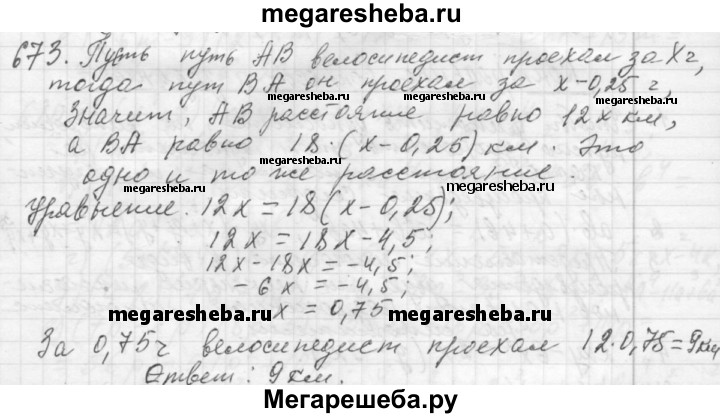 megaresheba.ru
673. Пусть путь АВ велосипедист проехал за х ч,
тогда пут ВА он проехал за х-0,25 ч,
megaresheba.ru megaresheba.ru
Значит, АВ расстояние равно 12х км,
а ВА равно 18·(х-0,25) км. Это
одно и то же расстояние.
megaresheba.ru megaresheba.ru
Уравнение. 12х=18(х-0,25);
12х=18х-4,5;
12х-18х=-4,5;
-6х=-4,5;
megaresheba.ru megaresheba.ru
х=0,75
За 0,75ч велосипедист проехал 12·0,75=9км
Ответ: 9 км.
Мегарешеба.ру